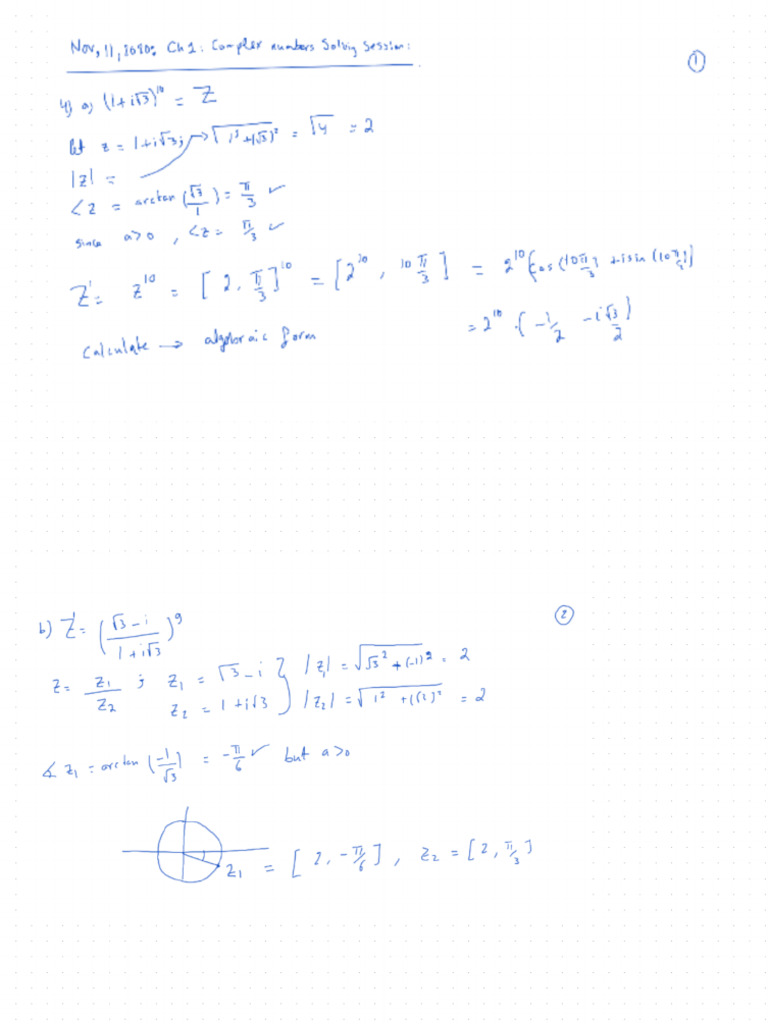 Nov, 11, 2020: Ch1: Complex numbers Solving Session:
①
4) a) (1+i√3)^10 = Z
let z = 1+i√3; → √(1² + (√3)²) = √4 = 2
|z| =
∠z = arctan (√3/1) = π/3 ✓
since a>0, ∠z = π/3 ✓
Z = z^10 = [2, π/3]^10 = [2^10, 10 π/3] = 2^10 (cos (10π/3) + i sin (10π/3))
Calculate → algebraic form
= 2^10 · (-1/2 - i√3/2)
②
b) Z = ((√3 - i)/(1 + i√3))^9
z = z₁/z₂ ; z₁ = √3 - i } |z₁| = √(√3² + (-1)²) = 2
z₂ = 1 + i√3 } |z₂| = √(1² + (√2)²) = 2
∡ z₁ = arctan (-1/√3) = -π/6 ✓ but a>0
z₁ = [2, -π/6], z₂ = [2, π/3]